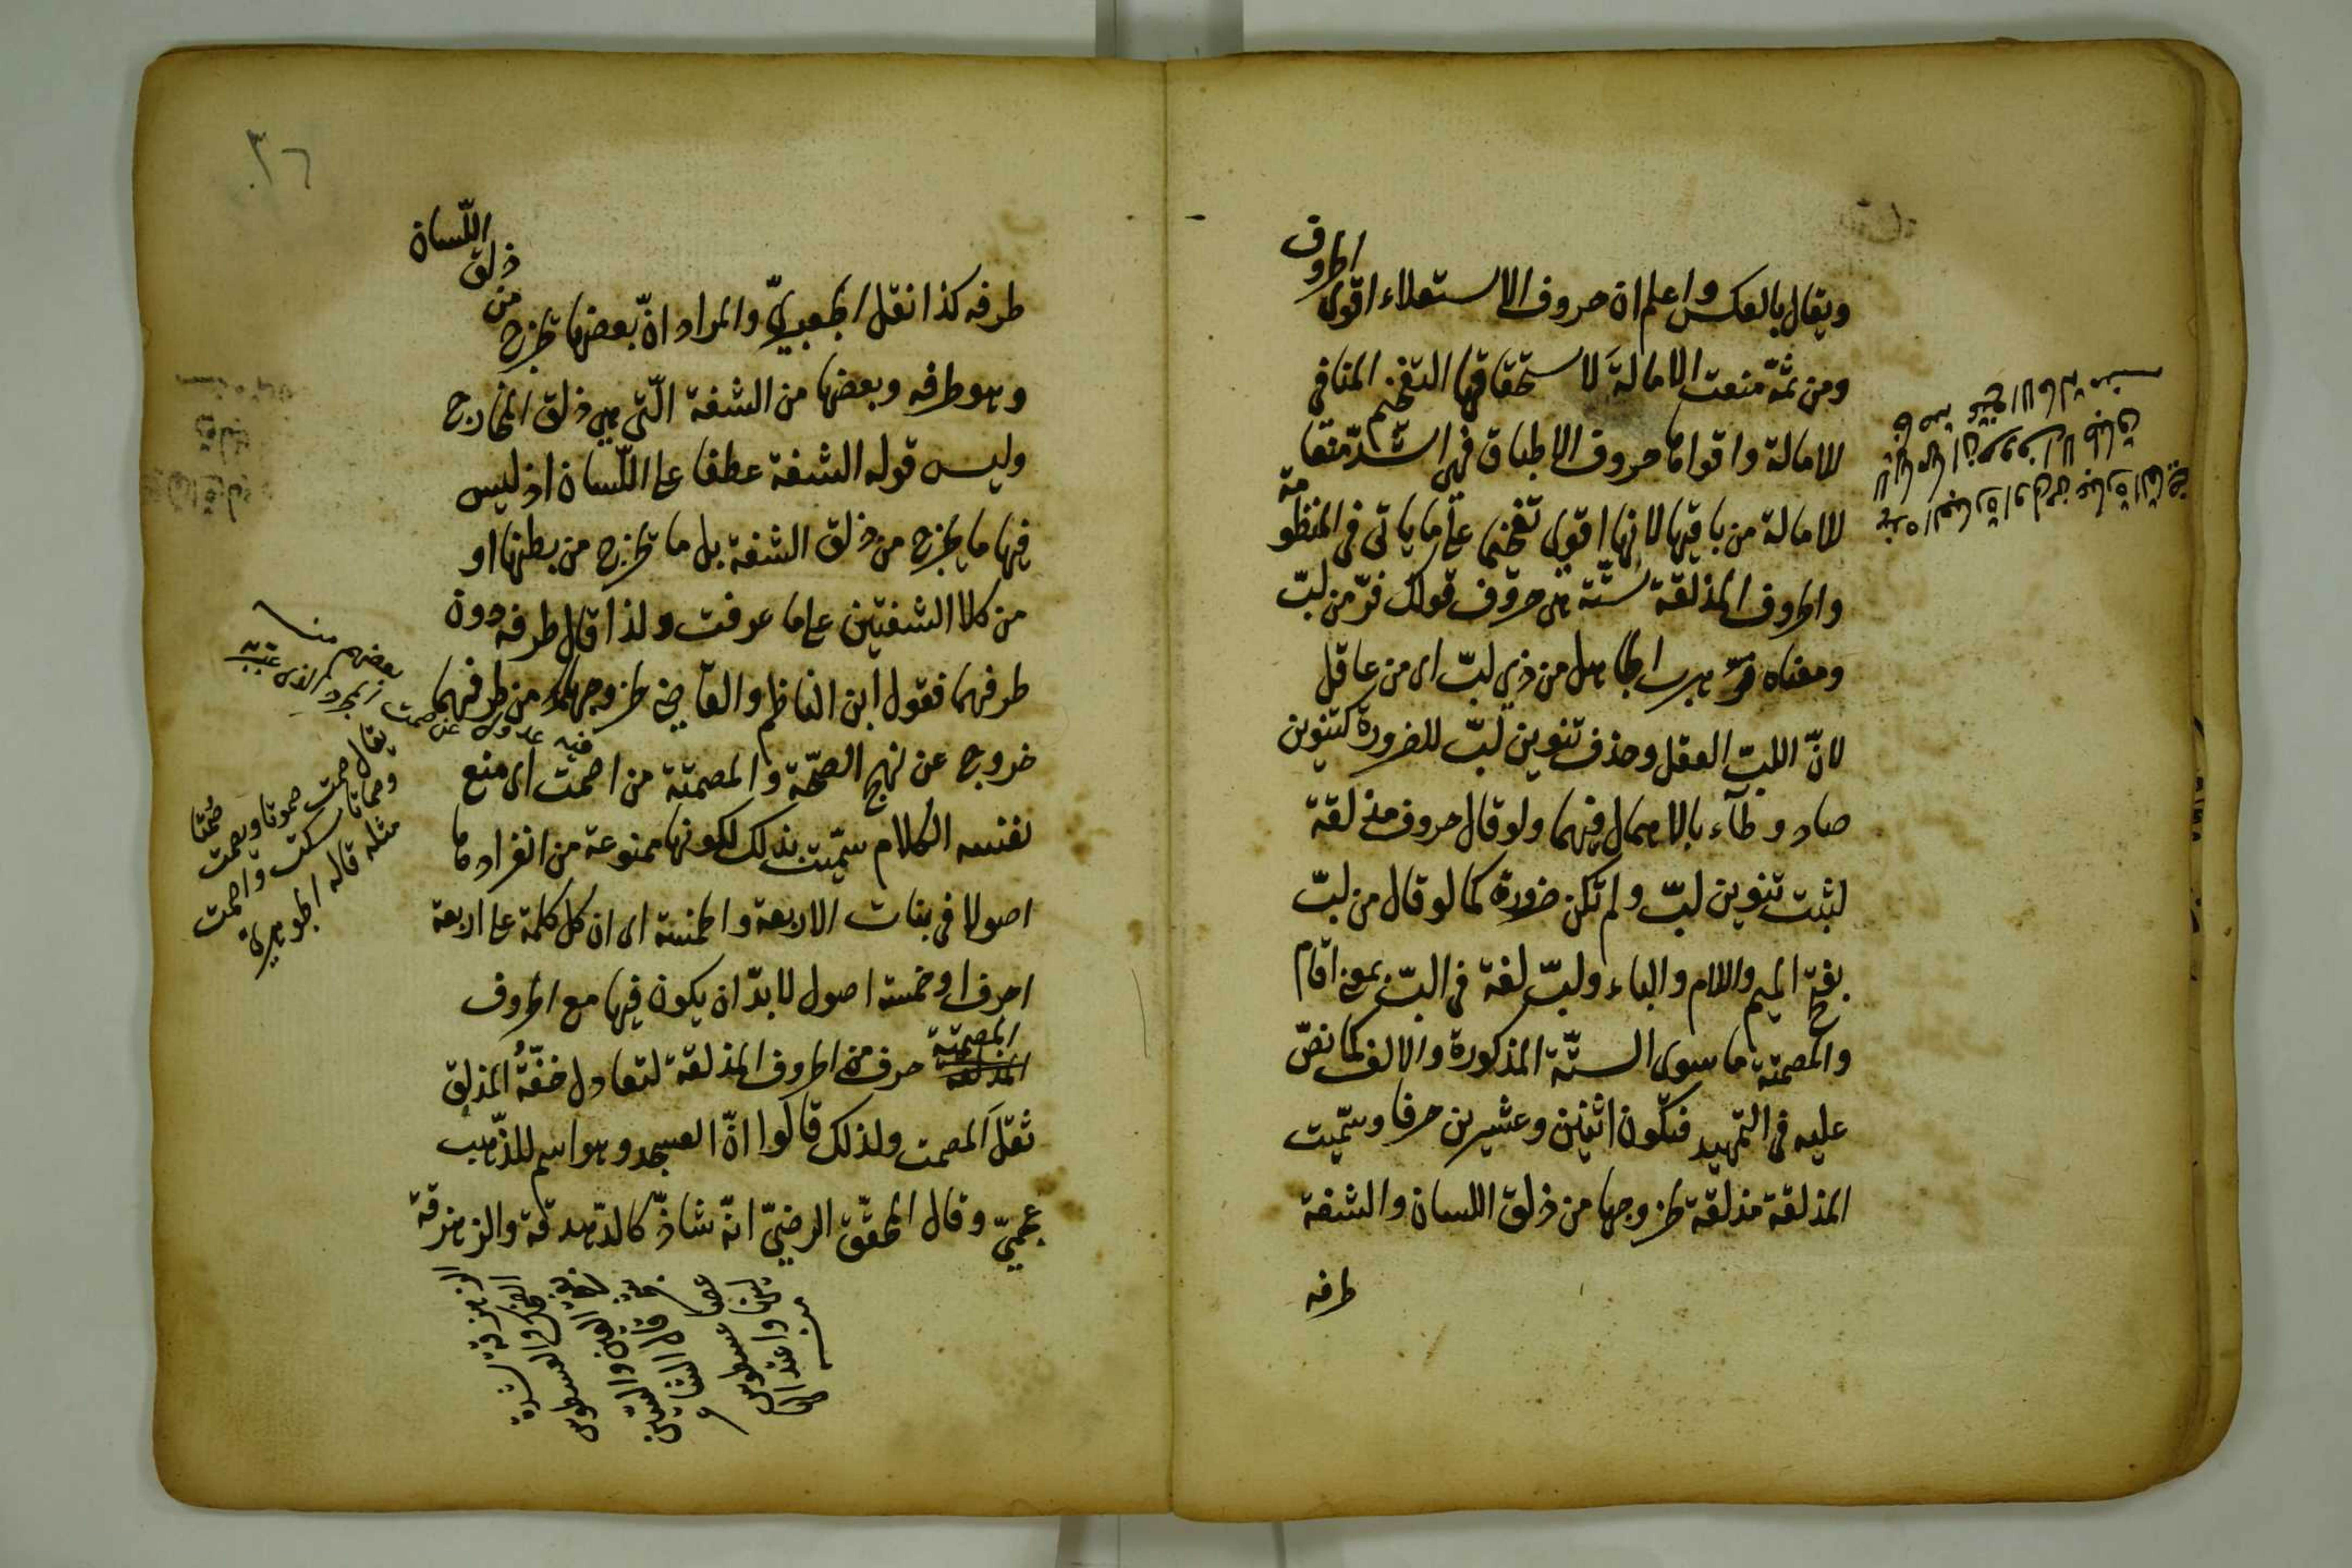 ويقال بالعكس واعلم ان حروف الاستعلاء اقوى الحروف
ومن ثمّة منعت الامالة لاستحقاقها التفخيم المنافي
للامالة واقواها حروف الاطباق فهي اشدّ منعا
للامالة من باقيها لانها اقوى تفخيما على ما ياتى فى المنظومة
والحروف المذلقة ستّة هى حروف قولك فرّ من لبّ
ومعناه فرّ هرب الجاهل من ذي لبّ اى من عاقل
لانّ اللبّ العقل وحذف تنوين لبّ للضرورة كتنوين
صاد وطآء بالاهمال فيهما ولو قال حروف مذلقة
لثبت تنوين لبّ ولم تكن ضرورة كما لو قال من لبّ
بفتح الميم واللام والباء ولبّ لغة فى البّ بمعنى اقام
والمصمتة ما سوى الستّة المذكورة والالف كما نصّ
عليه فى التمهيد فتكون اثنين وعشرين حرفا وسمّيت
المذلقة مذلقة لخروجها من ذلق اللسان والشفة
طرفه
٣٠
طرفه كذا نقل الجعبريّ والمراد انّ بعضها تخرج من ذلق اللّسان
وهو طرفه وبعضها من الشفة الّتى هى ذلق المخارج
وليس قوله الشفة عطفا على اللّسان اذ ليس
فيها ما يخرج من ذلق الشفة بل ما تخرج من بطنها او
من كلا الشفتين على ما عرفت ولذا قال طرفه دون
طرفهما فقول ابن الناظم والقاضي لخروجها من طرفهما
خروج عن نهج الصحّة والمصمتة من اصمت اى منع
نفسه الكلام سمّيت بذلك لكونها ممنوعة من انفرادها
اصولا فى بنات الاربعة والخمسة اى ان كل كلمة على اربعة
احرف او خمسة اصول لا بدّ ان يكون فيها مع الحروف
المصمتة حرف من الحروف المذلقة لتعادل خفّةُ المذلق
ثقلَ المصمت ولذلك قالوا انّ العسجد وهو اسم للذّهب
عجميّ وقال المحقّق الرضيّ انّه شاذّ كالدّهدقة والزهزقة
فيه عدول عن صمت المجرد الذى عيّنه
بعضهم منه
يقال صمت صموتا وصمت صُمْتا
وصماتا سكت واصمت
مثله قاله الجوهري
الزهزقة شدة
الضحك والعسطوس
بفتح العين والسين
قال الشاعر
عصا عسطوس
لينها واعتدالها
منه